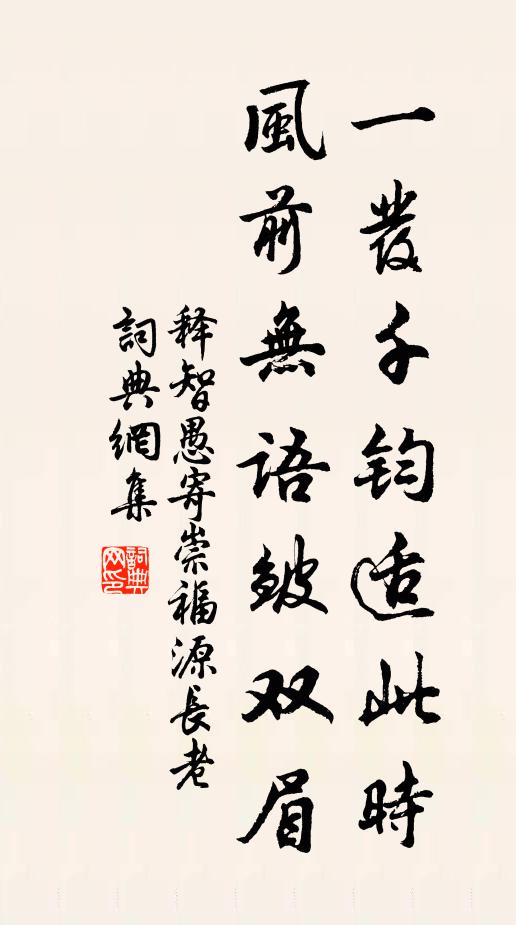 一發千钧适此時
風前無語皱双眉
释智愚寄崇福源長老
詞典網集
詞典网印